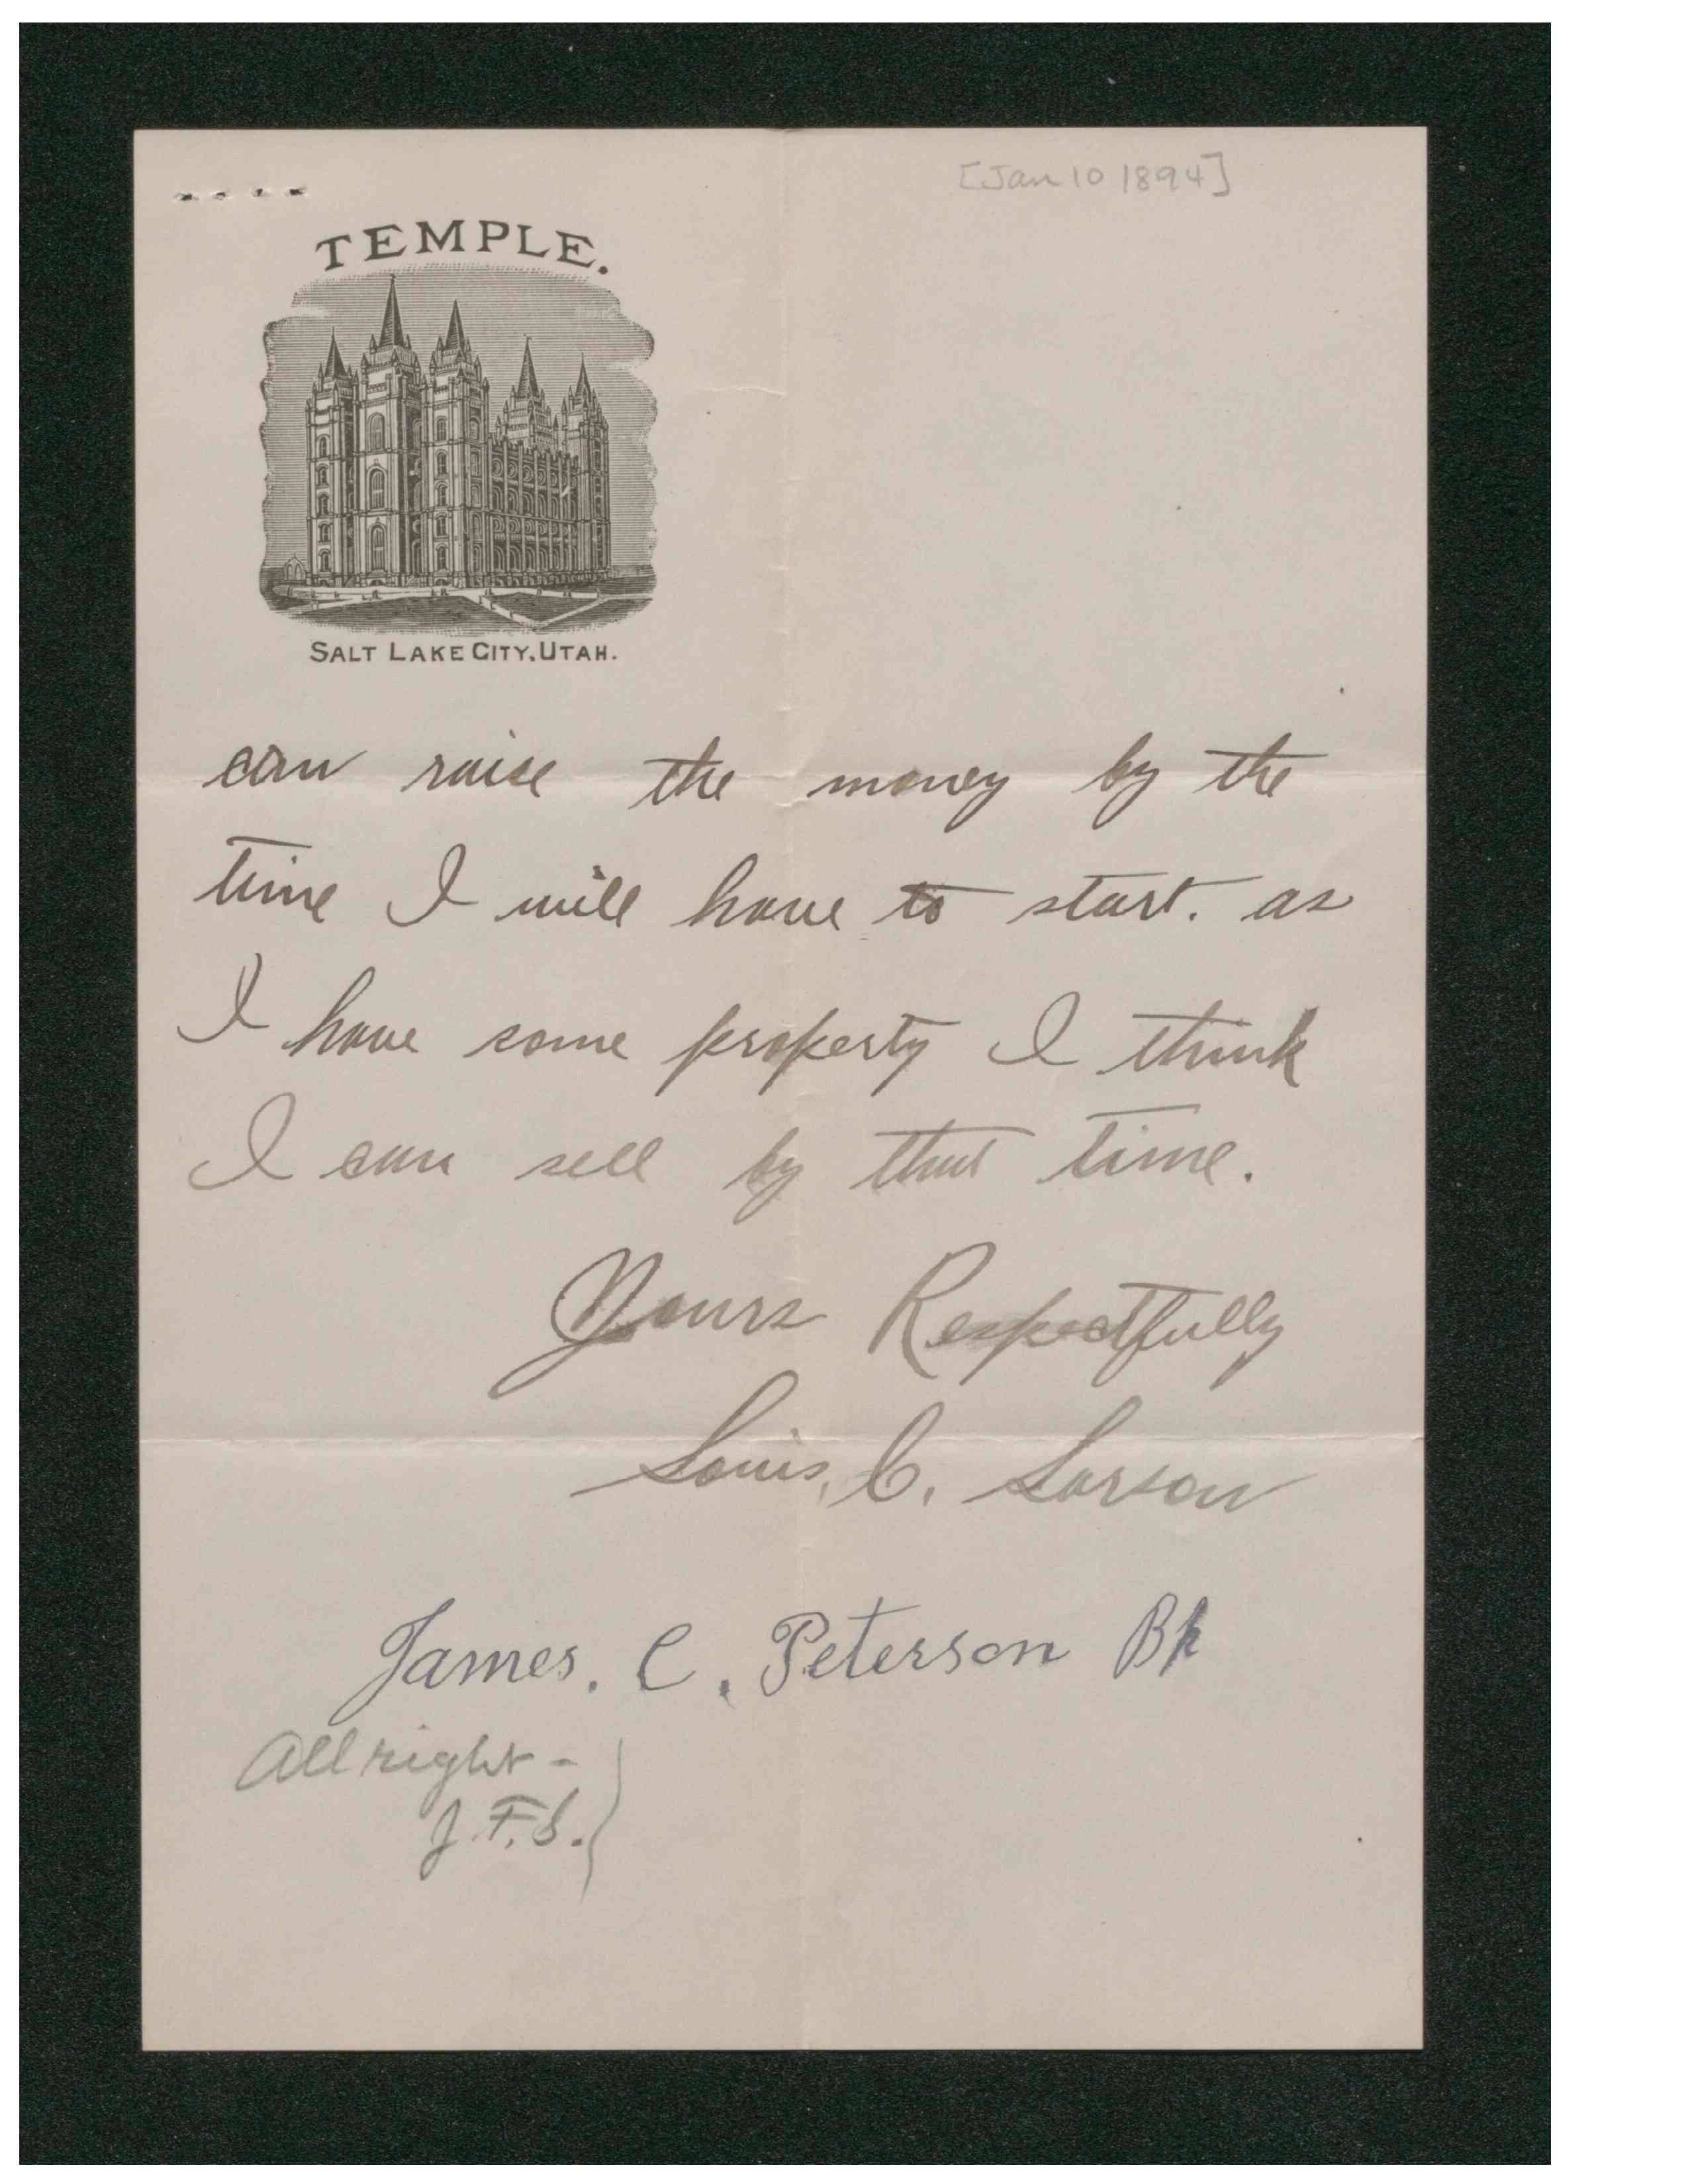 [Jan 10 1894]
TEMPLE.
SALT LAKE CITY, UTAH.
can raise the money by the
time I will have to start. as
I have some property I think
I can sell by that time.
Yours Respectfully
Louis. C. Larson
James. C. Peterson Bp
All right -
J. F. S.